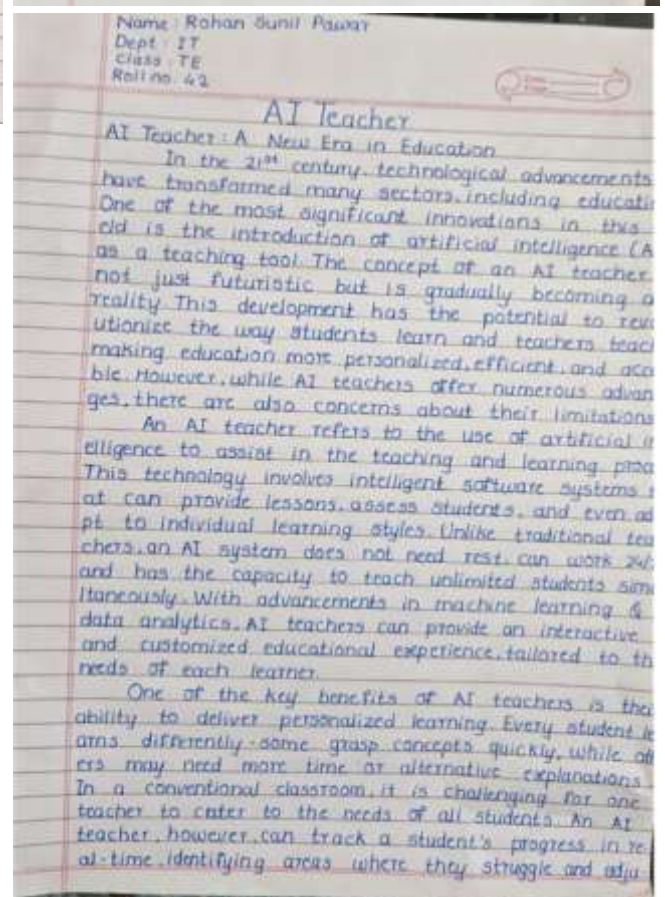 Name : Rohan Sunil Pawar
Dept : IT
Class : TE
Roll no. 42
AI Teacher
AI Teacher : A New Era in Education
In the 21st century, technological advancements
have transformed many sectors, including educati
One of the most significant innovations in this
eld is the introduction of artificial intelligence (A
as a teaching tool. The concept of an AI teacher
not just futuristic but is gradually becoming a
reality. This development has the potential to revo
utionize the way students learn and teachers teac
making education more personalized, efficient, and acce
ble. However, while AI teachers offer numerous advan
ges, there are also concerns about their limitations
An AI teacher refers to the use of artificial in
elligence to assist in the teaching and learning proc
This technology involves intelligent software systems
at can provide lessons, assess students, and even ad
pt to individual learning styles. Unlike traditional tea
chers, an AI system does not need rest, can work 24/
and has the capacity to teach unlimited students simu
ltaneously. With advancements in machine learning &
data analytics, AI teachers can provide an interactive
and customized educational experience, tailored to th
needs of each learner.
One of the key benefits of AI teachers is thei
ability to deliver personalized learning. Every student le
arns differently - some grasp concepts quickly, while oth
ers may need more time or alternative explanations
In a conventional classroom, it is challenging for one
teacher to cater to the needs of all students. An AI
teacher, however, can track a student's progress in re
al-time, identifying areas where they struggle and adju